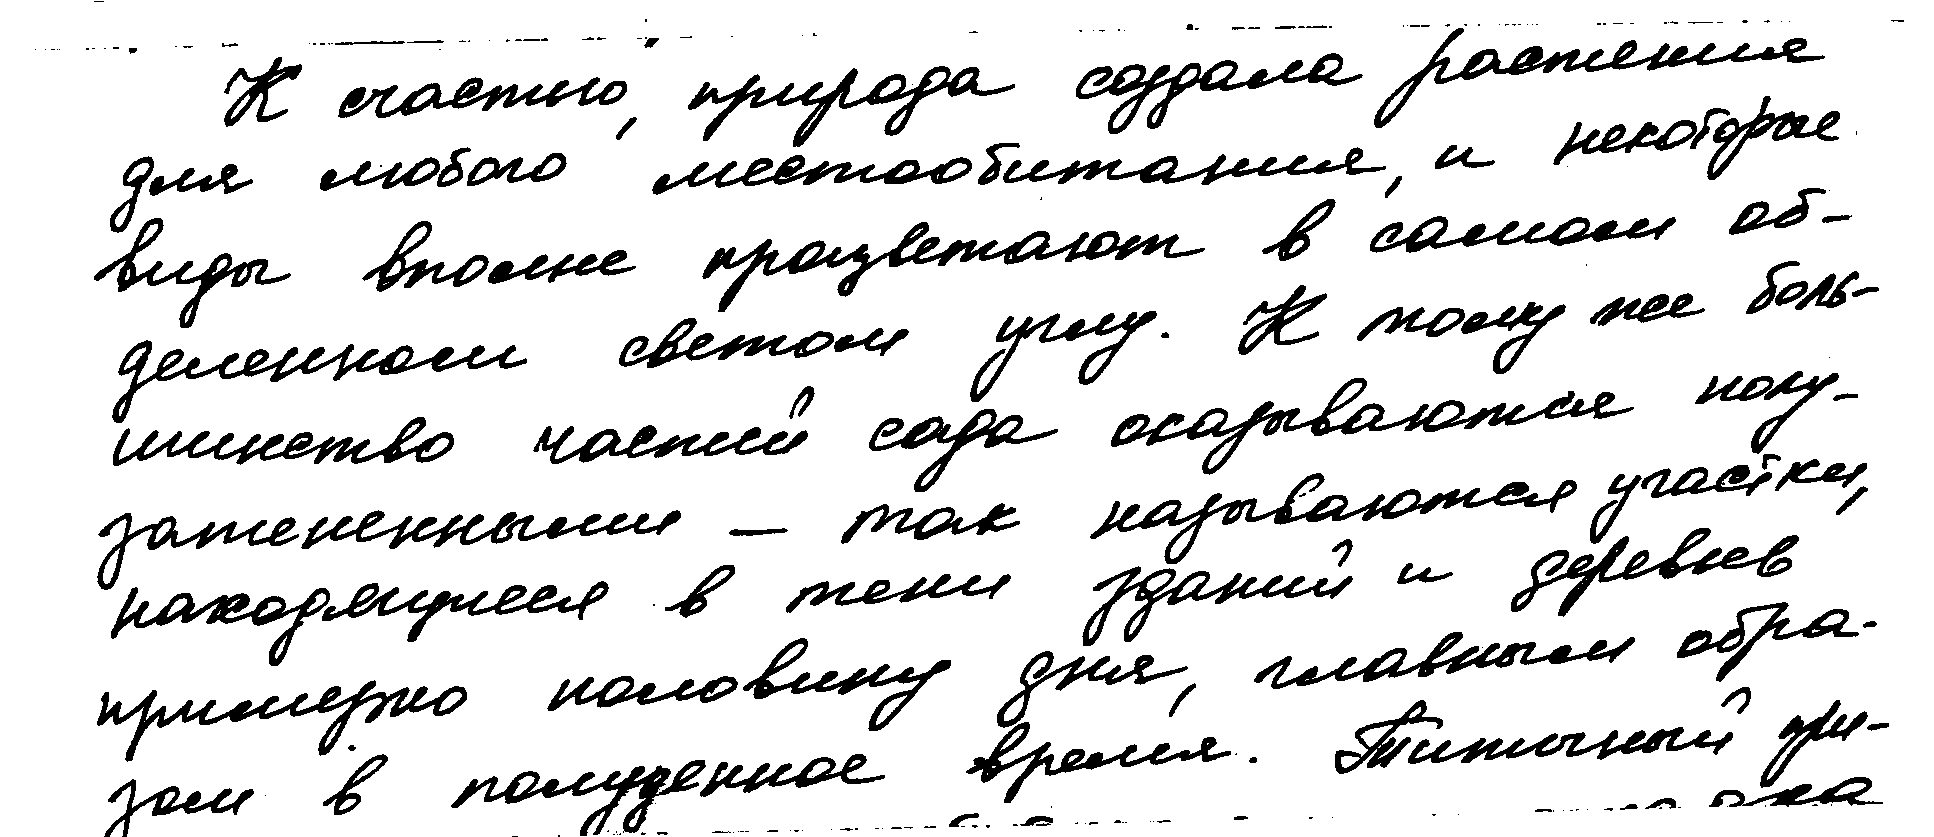 К счастью, природа создала растения
для любого местообитания, и некоторые
виды вполне процветают в самом об-
деленном светом углу. К тому же боль-
шинство частей сада оказываются полу-
затененными — так называются участки,
находящиеся в тени зданий и деревьев
примерно половину дня, главным обра-
зом в полуденное время. Типичный при-